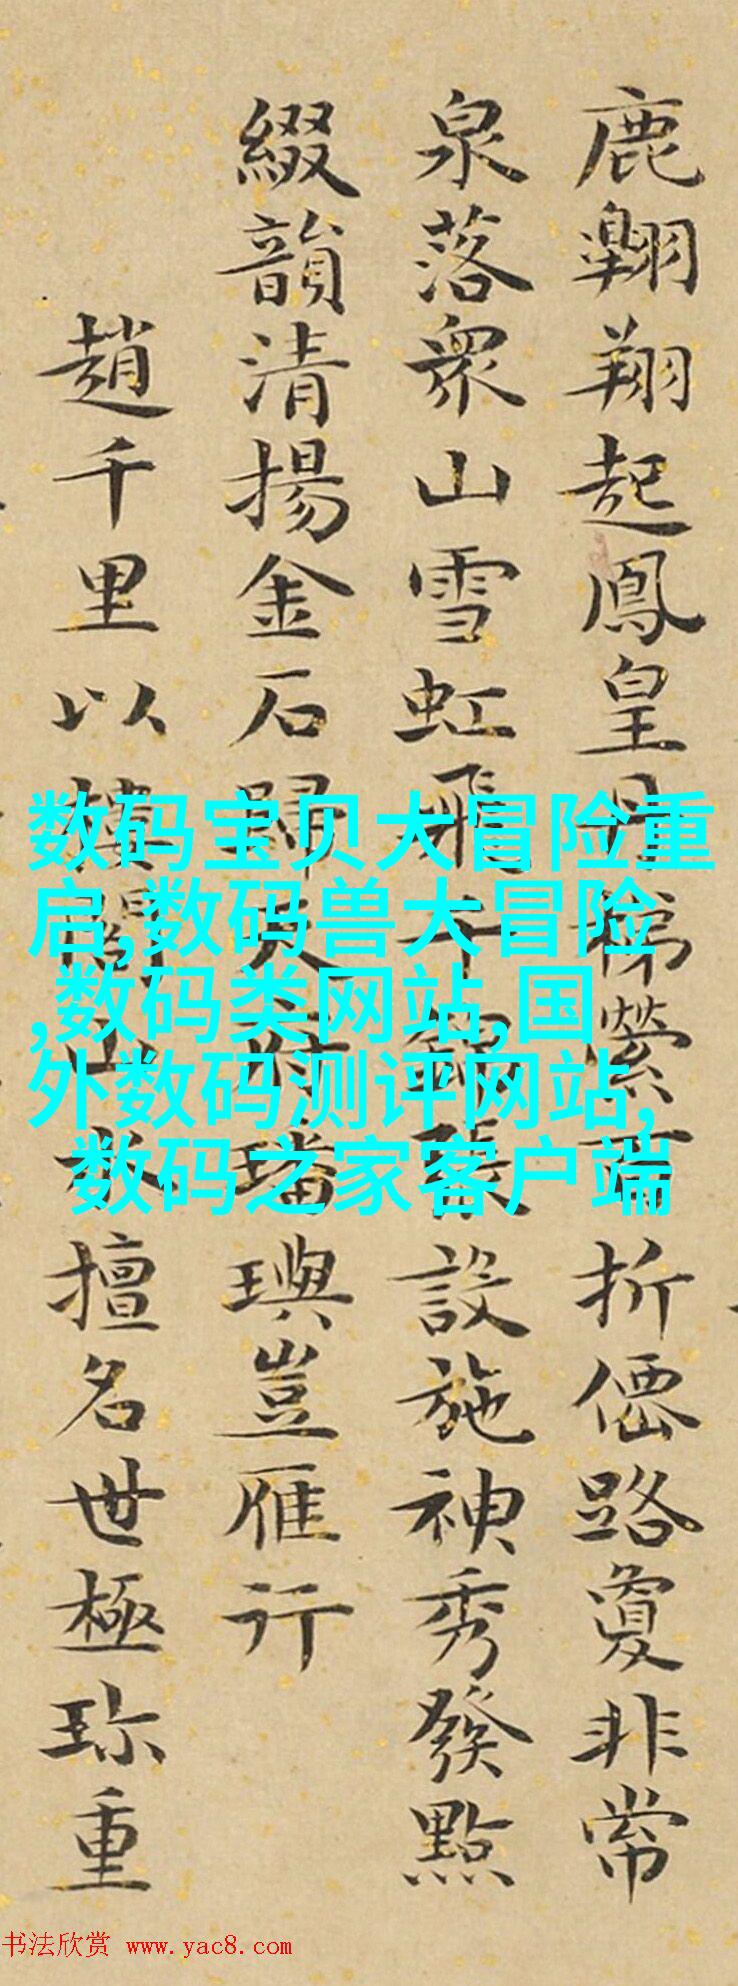 鹿翺翔起鳳皇丹梯縈百折僊路敻非常
泉落衆山雪虹飛千錦張設施神秀發點
綴韻清揚金石歸天府璠璵豈雁行
趙千里以樓閣山水擅名世極珎重
数码宝贝大冒险重
启,数码兽大冒险
,数码类网站,国
外数码测评网站,
数码之家客户端
书法欣赏 www.yac8.com